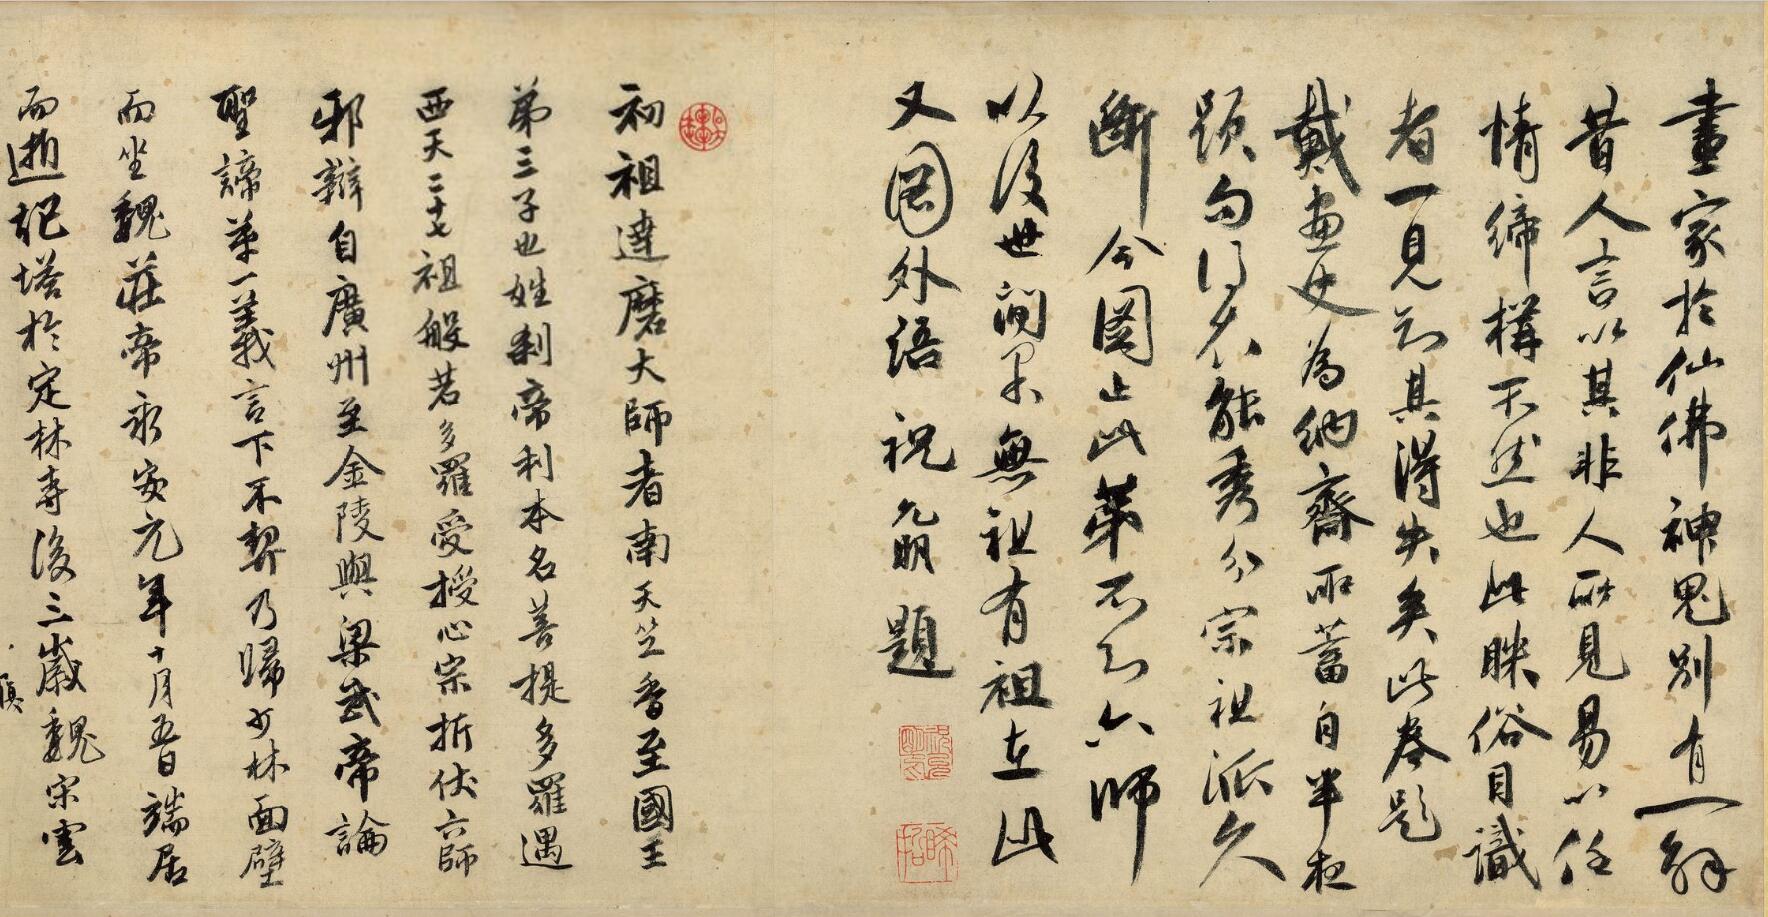 畫家於仙佛神鬼別有一
昔人言以其非人所見易以任
情締構不然也此眯俗目識
者一見知其得失矣此卷題
戴畫史為納齋所蓄自半夜
頌句得不能秀分宗祖派久
斷今圖止此第不知六師
以後世間果無祖有祖在此
又圖外語 祝允明題
初祖達磨大師者南天竺香至國王
弟三子也姓剎帝利本名菩提多羅遇
西天二十七祖般若多羅受授心宗折伏六師
邪辯自廣州至金陵與梁武帝論
聖諦第一義言下不契乃歸少林面壁
而坐魏莊帝永安元年十月五日端居
而逝祀塔於定林寺後三歲魏宋雲